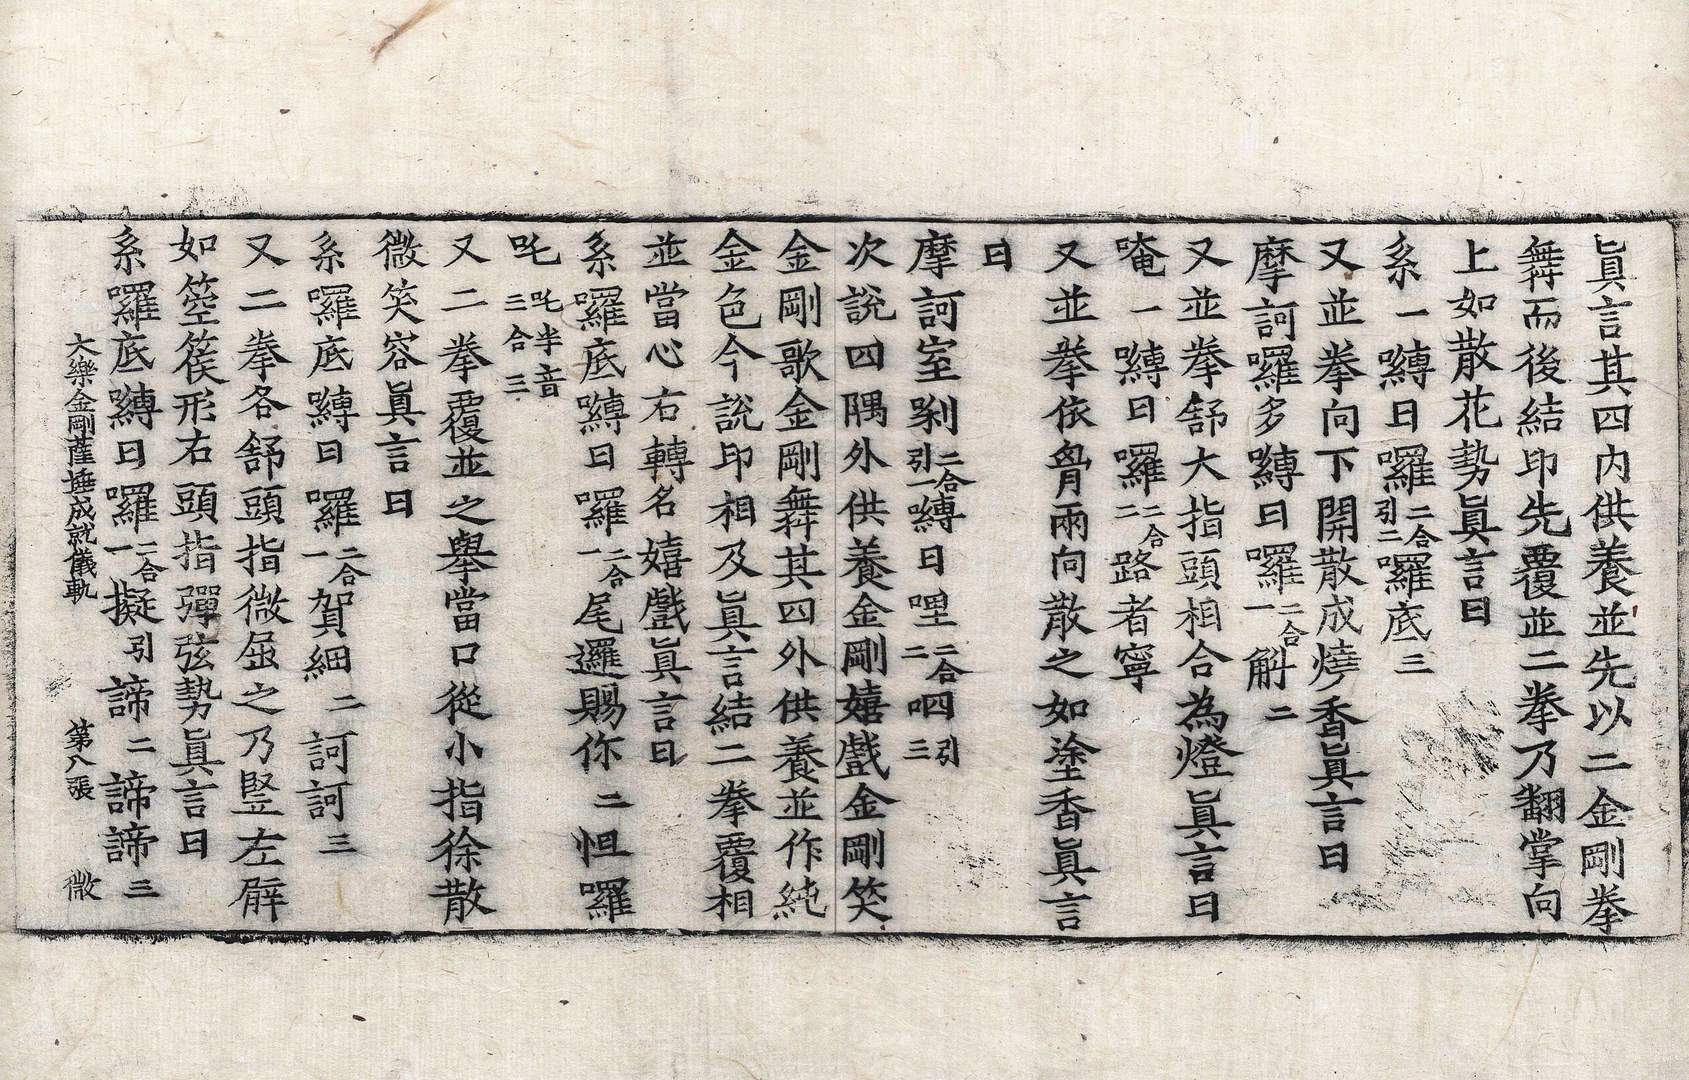 眞言其四內供養並先以二金剛拳
舞而後結印先覆並二拳乃翻掌向
上如散花勢眞言曰
系一嚩日囉二合引二囉底三
又並拳向下開散成燒香眞言曰
摩訶囉多嚩日囉二合一斛二
又並拳舒大指頭相合為燈眞言曰
唵一嚩日囉二合二路者寧
又並拳依胷兩向散之如塗香眞言
曰
摩訶室剎二合引一嚩日哩二合二呬引三
次說四隅外供養金剛嬉戲金剛笑
金剛歌金剛舞其四外供養並作純
金色今說印相及眞言結二拳覆相
並當心右轉名嬉戲眞言曰
系囉底嚩日囉二合一尾邏賜你二怛囉
吒吒半音三合三
又二拳覆並之舉當口從小指徐散
微笑容眞言曰
系囉底嚩日囉二合一賀細二訶訶三
又二拳各舒頭指微屈之乃竪左臂
如箜篌形右頭指彈弦勢眞言曰
系囉底嚩日囉二合一擬引諦二諦諦三
大樂金剛薩埵成就儀軌 第八張 微